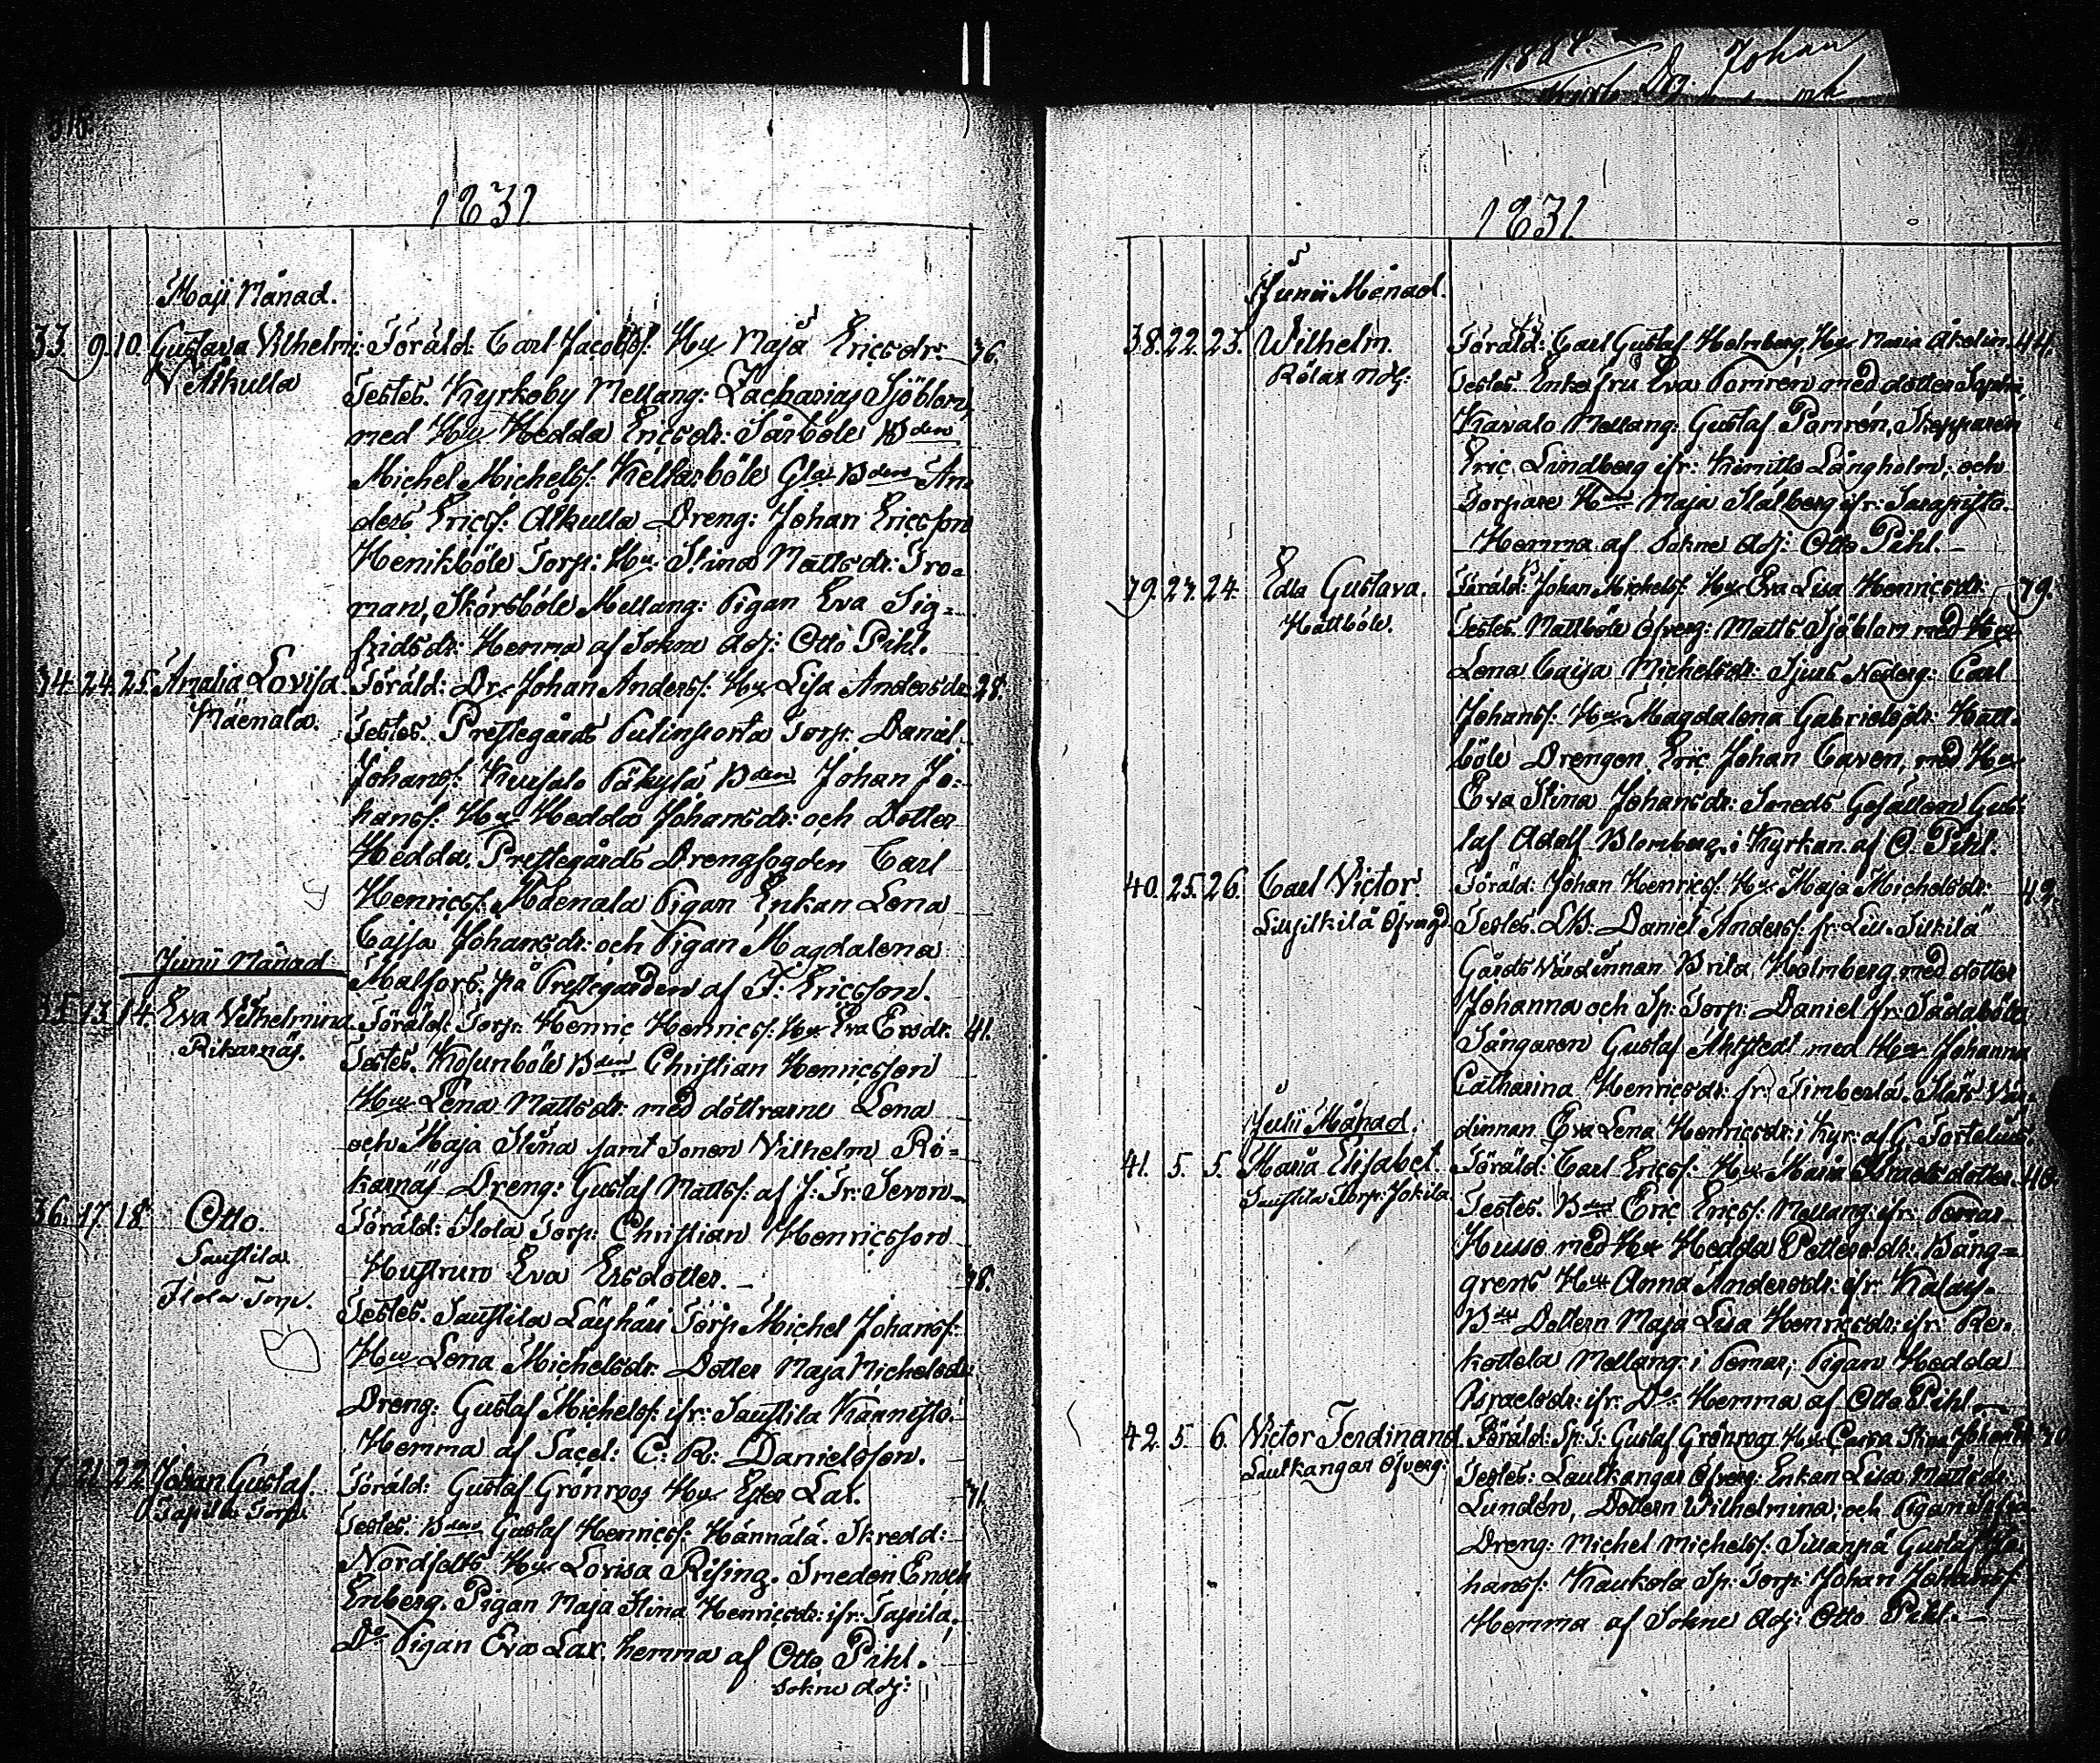 1831
Maji Månad.
33. 9. 10. Gustava Vilhelmi: Föräld: Carl Jacobss: Hu Maja Ericsdr: 36.
Ålkulla
Testes. Kyrkoby Mellang: Zacharias Sjöblom,
med Hu Hedda Ericsdr: Särböle Bden
Michel Michelss: Keltarböle Gla Bden An
ders Ericss: Alkulla Dreng: Johan Ericsson
Henikböle Torp: Hu Stina Mattsdr: Tro-
man, Skörsböle Mellang: Pigan Eva Sig-
fridsdr: Hemma af Sokne Adj: Otto Pihl.
34. 24. 25. Amalia Lovisa. Föräld: Dr. Johan Anderss: Hu Lisa Andersdr 28.
Mäenala.
Testes. Prestegårds Torp: Daniel
Johanss: Päkylä Bden Johan Jo-
hanss: Hu Hedda Johansdr: och Dotter
Hedda. Prestegårds Drengfogden Carl
Henricss: Mäenala Pigan Enkan Lena
Cajsa Johansdr: och Pigan Magdalena
Malfors. på Prestegården af F: Ericsson.
Junii Månad
35. 13. 14. Eva Vilhelmina. Föräld: Torp: Henric Henricss: Hu Eva Ersdr: 41.
Rikarnäs.
Testes. Kosunböle Bden Christian Henricsson
Hu Lena Mattsdr: med döttrarne Lena
och Maja Stina samt Sonen Vilhelm Ri-
karnäs Dreng: Gustaf Mattss: af J: Fr:
36. 17. 18. Otto. Föräld: Ilola Torp: Christian Henricsson
Saustila
Hustrun Eva Ersdotter. 38.
Ilola Torp.
Testes. Saustila Läyhäri Torp: Michel Johanss:
Hu Lena Michelsdr. Dotter Maja Michelsdr
Dreng: Gustaf Michelss: ifr: Saustila Kannisto.
Hemma af Sacel: C: R: Danielsson.
37. 21. 22. Johan Gustaf. Föräld: Gustaf Grönroos Hu Ester Lax. 31.
Tapila Torp.
Testes. Bden Gustaf Henricss: Hännälä. Skredd:
Nordfelts Hu Lovisa Rising. Smeden Enoch
Enberg. Pigan Maja Stina Henricsdr: ifr: Tapila,
Do Pigan Eva Lax. hemma af Otto Pihl.
Sokne Adj:
1831.
Junii Månad.
38. 22. 23. Wilhelm. Föräld: Carl Gustaf Holmberg, Hu Maria Åkelin. 44.
Rölax Ndg:
Testes. Enkefru Eva Pomrén med dotter Sophi,
Kavalo Mellang: Gustaf Pomrén, Skepparen
Eric Lindberg ifr: Kimitto Långholm; och
Torpare Hun Maja Stålberg ifr: Sarapisto.
Hemma af Sokne Adj: Otto Pihl.
39. 23. 24. Edla Gustava. Föräld: Johan Michelss: Hu Eva Lisa Henricsdr: 39.
Hattböle.
Testes. Mattböle Öfverg: Matts Sjöblom med Hu
Lena Caisa Michelsdr: Sjurs Nederg: Carl
Johanss: Hu Magdalena Gabrielsdr: Hatt-
böle Drengen Eric Johan Caven, med Hu
Eva Stina Johansdr: Smeds Gesällen Gus-
taf Adolf Blomberg. i Kyrkan af O. Pihl.
40. 25. 26. Carl Victor. Föräld: Johan Henricss: Hu Maja Michelsdr: 42.
Lillsilkilä Öfvergd
Testes. LB: Daniel Anderss: fr: Lill-Silkilä
Gårds Värdinnan Brita Holmberg med dotter
Johanna och Sp: Torp: Daniel fr: Sådaböle
Sångaren Gustaf Ahlstedt med Hu Johanna
Catharina Henricsdr: fr: Timberlä. Vär-
dinnan Eva Lena Henricsdr: i Kyr: af G. Forteliüs.
Julii Månad.
41. 5. 5. Maria Elisabet. Föräld: Carl Ericss: Hu Maria Israelsdotter. 40.
Saustila Torp: Jokila
Testes. Bden Eric Ericss: Mellang: ifr: Pemar
Husso med Hu Hedda Pettersdr: Bång-
grens Hu Anna Andersdr: ifr: Kalays.
Bds Dottern Maja Lisa Henricsdr: ifr: Re-
kottela Mellang: i Pemar; Pigan Hedda
Israelsdr: ifr: Do: Hemma af Otto Pihl.
42. 5. 6. Victor Ferdinand. Föräld: Sp: T: Gustaf Grönroos Hu Carin Stina Johansd
Laukkangar Öfverg:
Testes: Laukkangar Öfverg: Enkan Lisa Mattsdr:
Lundén, Dottern Wilhelmina; och Pigan Sofia
Dreng: Michel Michelss: Sillanpä Gustaf Jo-
hanss: Kaukola Sp: Torp: Johan Johanss:
Hemma af Sokne Adj: Otto Pihl.